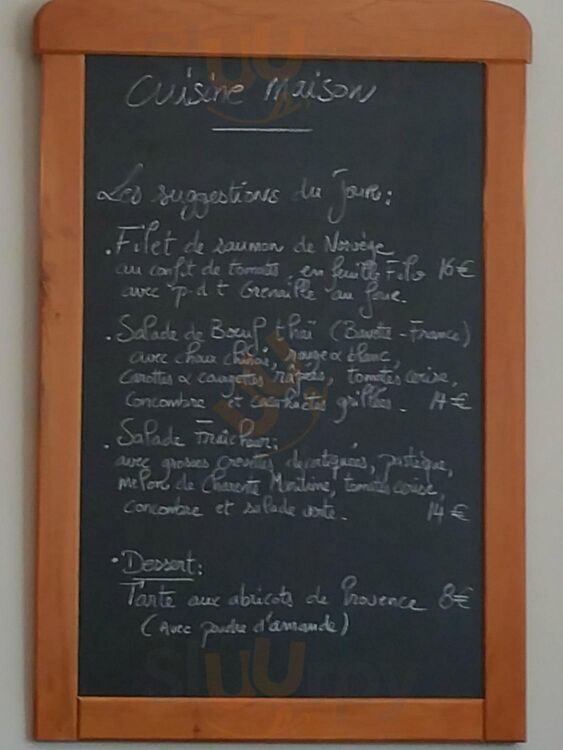 Cuisine Maison
Les suggestions du Jour:
. Filet de saumon de Norvège
au confit de tomates, en feuille Filo 16€
avec p.d.t Grenaille au four.
. Salade de Boeuf thaï (Bavette - France)
avec choux chinois, rouge & blanc,
Carottes & courgettes râpées, tomates cerise,
Concombre et cacahuètes grillées. 14€
. Salade Fraîcheur:
avec grosses crevettes décortiquées, pastèque,
melon de Charente Maritime, tomates cerise,
concombre et salade verte. 14€
. Dessert:
Tarte aux abricots de Provence 8€
(Avec poudre d'amande)